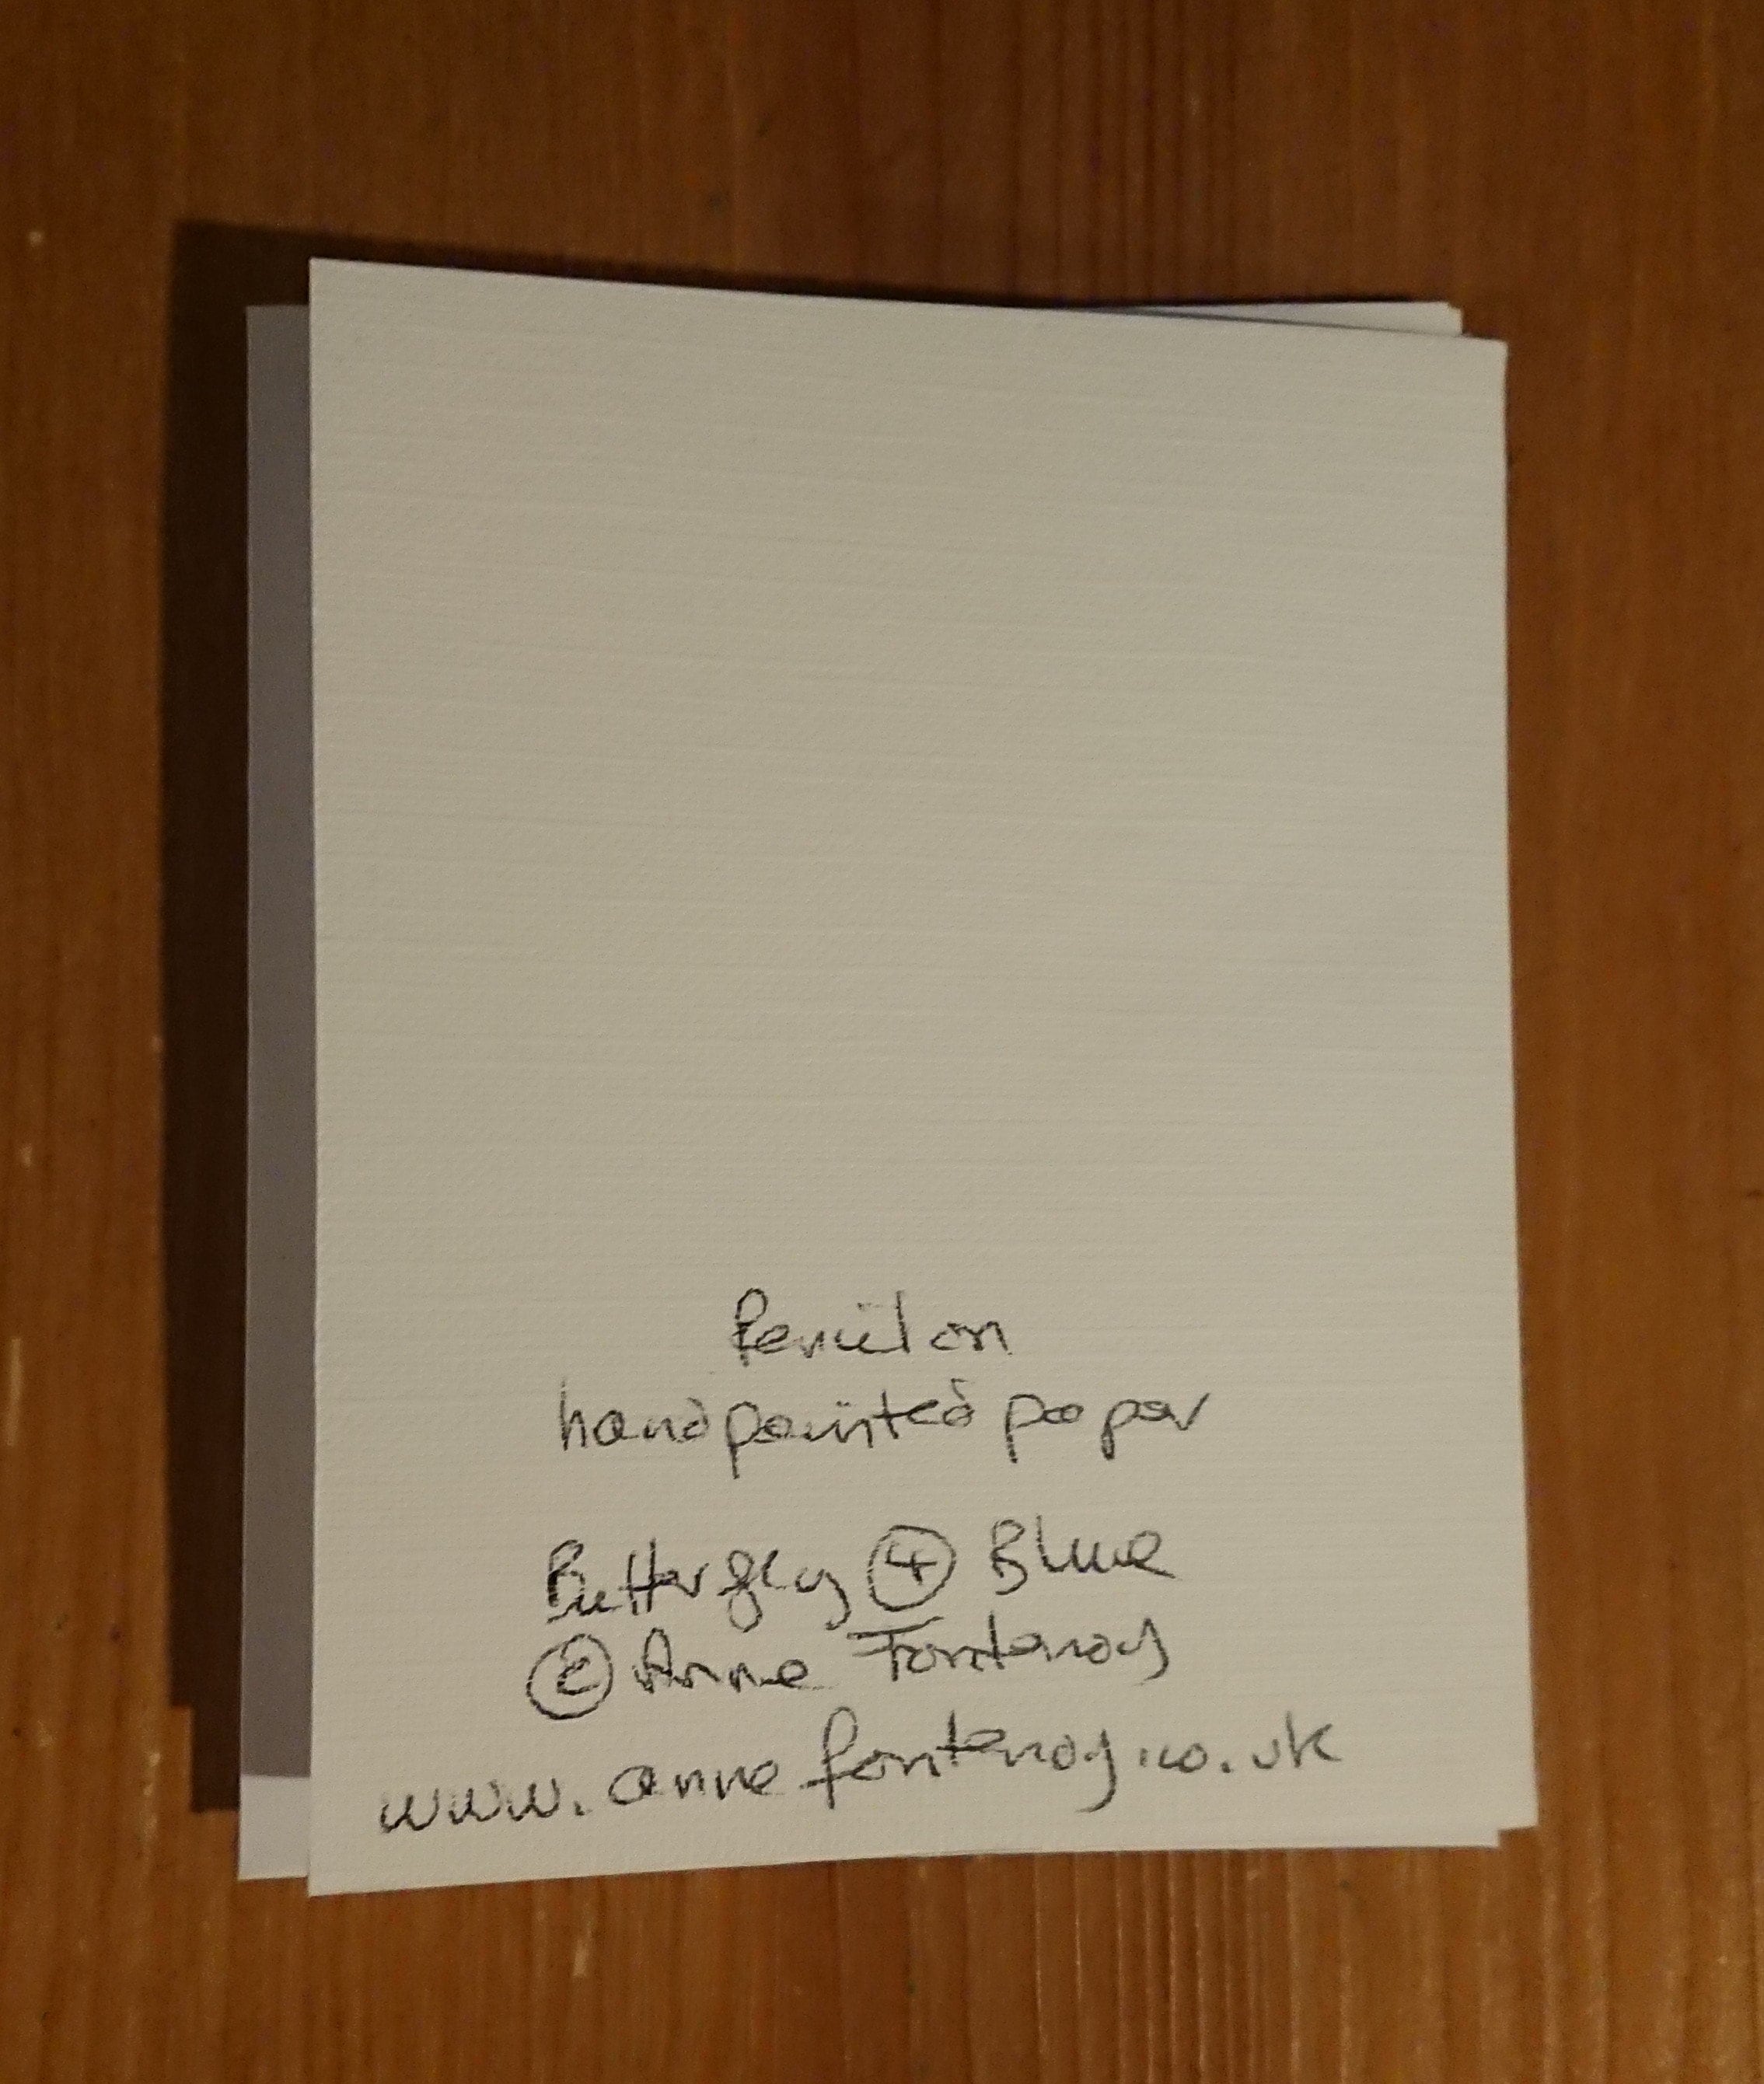 Pencil on
handpainted paper
Butterfly ④ Blue
© Anne Fontenoy
www.annefontenoy.co.uk